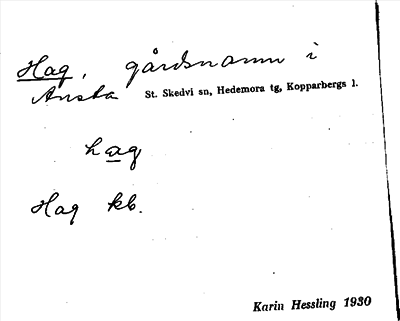 Hag, gårdsnamn i
Ansta St. Skedvi sn, Hedemora tg, Kopparbergs l.
hag
Hag kb.
Karin Hessling 1930